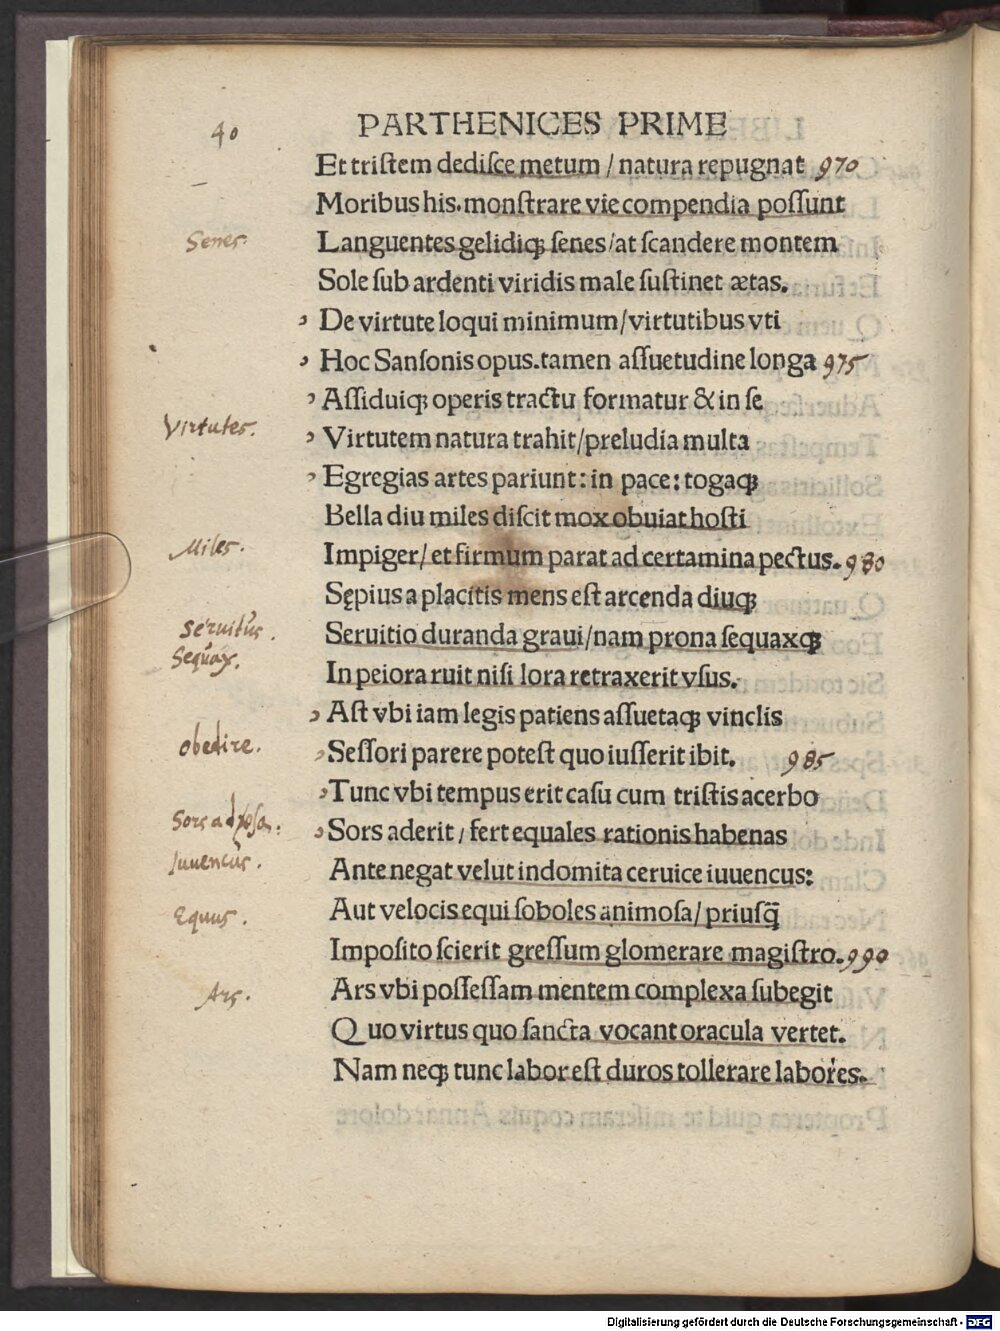 40
PARTHENICES PRIME
Et triſtem dediſce metum / natura repugnat 970
Moribus his. monſtrare vie compendia poſſunt
Senes. Languentes gelidiqꝫ ſenes / at ſcandere montem
Sole ſub ardenti viridis male ſuſtinet ætas.
De virtute loqui minimum / virtutibus vti
Hoc Sanſonis opus. tamen aſſuetudine longa 975
Aſſiduiqꝫ operis tractu formatur & in ſe
Virtutes. Virtutem natura trahit / preludia multa
Egregias artes pariunt: in pace: togaqꝫ
Bella diu miles diſcit mox obuiat hoſti
Miles. Impiger / et firmum parat ad certamina pectus. 980
Sępius a placitis mens eſt arcenda diuqꝫ
Seruitus. Seruitio duranda graui / nam prona ſequaxqꝫ
Sequax. In peiora ruit niſi lora retraxerit vſus.
Aſt vbi iam legis patiens aſſuetaqꝫ vinclis
obedire. Seſſori parere poteſt quo iuſſerit ibit. 985
Tunc vbi tempus erit caſu cum triſtis acerbo
Sors Sors aderit / fert equales rationis habenas
Iuuencus. Ante negat velut indomita ceruice iuuencus:
Equus. Aut velocis equi ſoboles animoſa / priuſq̄
Impoſito ſcierit greſſum glomerare magiſtro. 990
Ars. Ars vbi poſſeſſam mentem complexa ſubegit
Quo virtus quo ſancta vocant oracula vertet.
Nam neqꝫ tunc labor eſt duros tollerare labores.
Digitalisierung gefördert durch die Deutsche Forschungsgemeinschaft - DFG